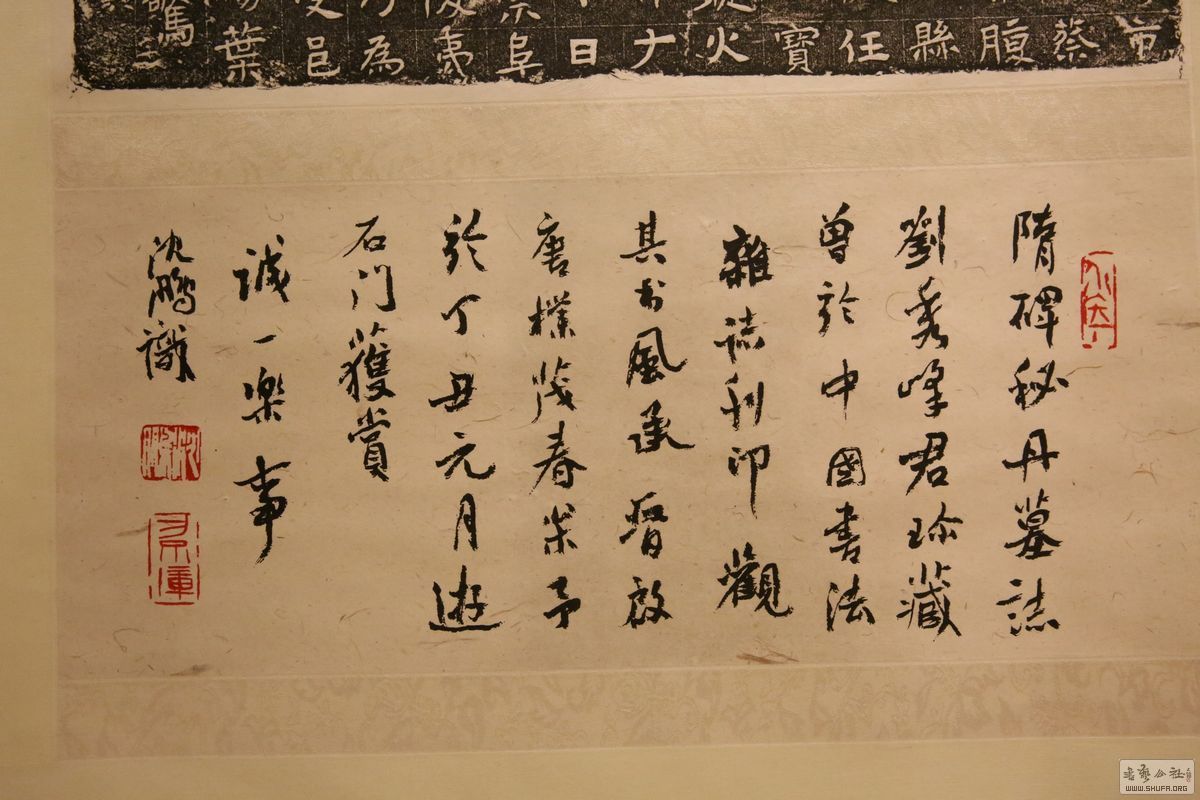 市
蔡
腹
縣
任
寶
火
日
阜
夷
為
邑
葉
三
隋碑秘丹墓誌
劉秀峰君珍藏
曾於中國書法
雜誌刊印觀
其書風承晉啟
唐樸茂春予
於丁丑元月遊
石門獲賞
誠一樂事
沈鵬識
沈鵬
書藝公社
WWW.SHUFA.ORG